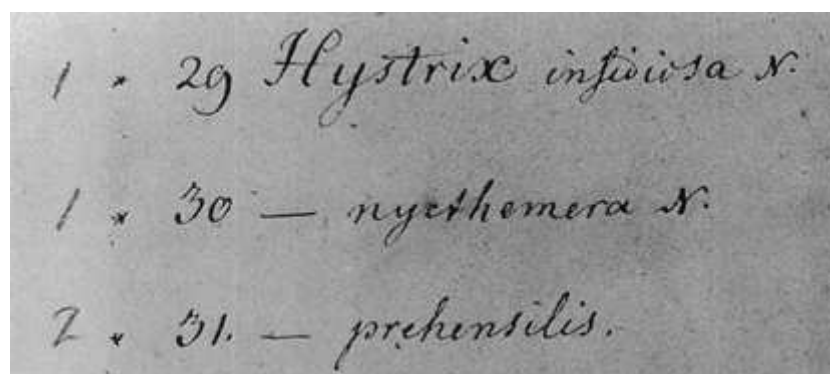 1 * 29 Hystrix insidiosa N.
1 * 30 — nycthemera N.
2 * 31. — prehensilis.